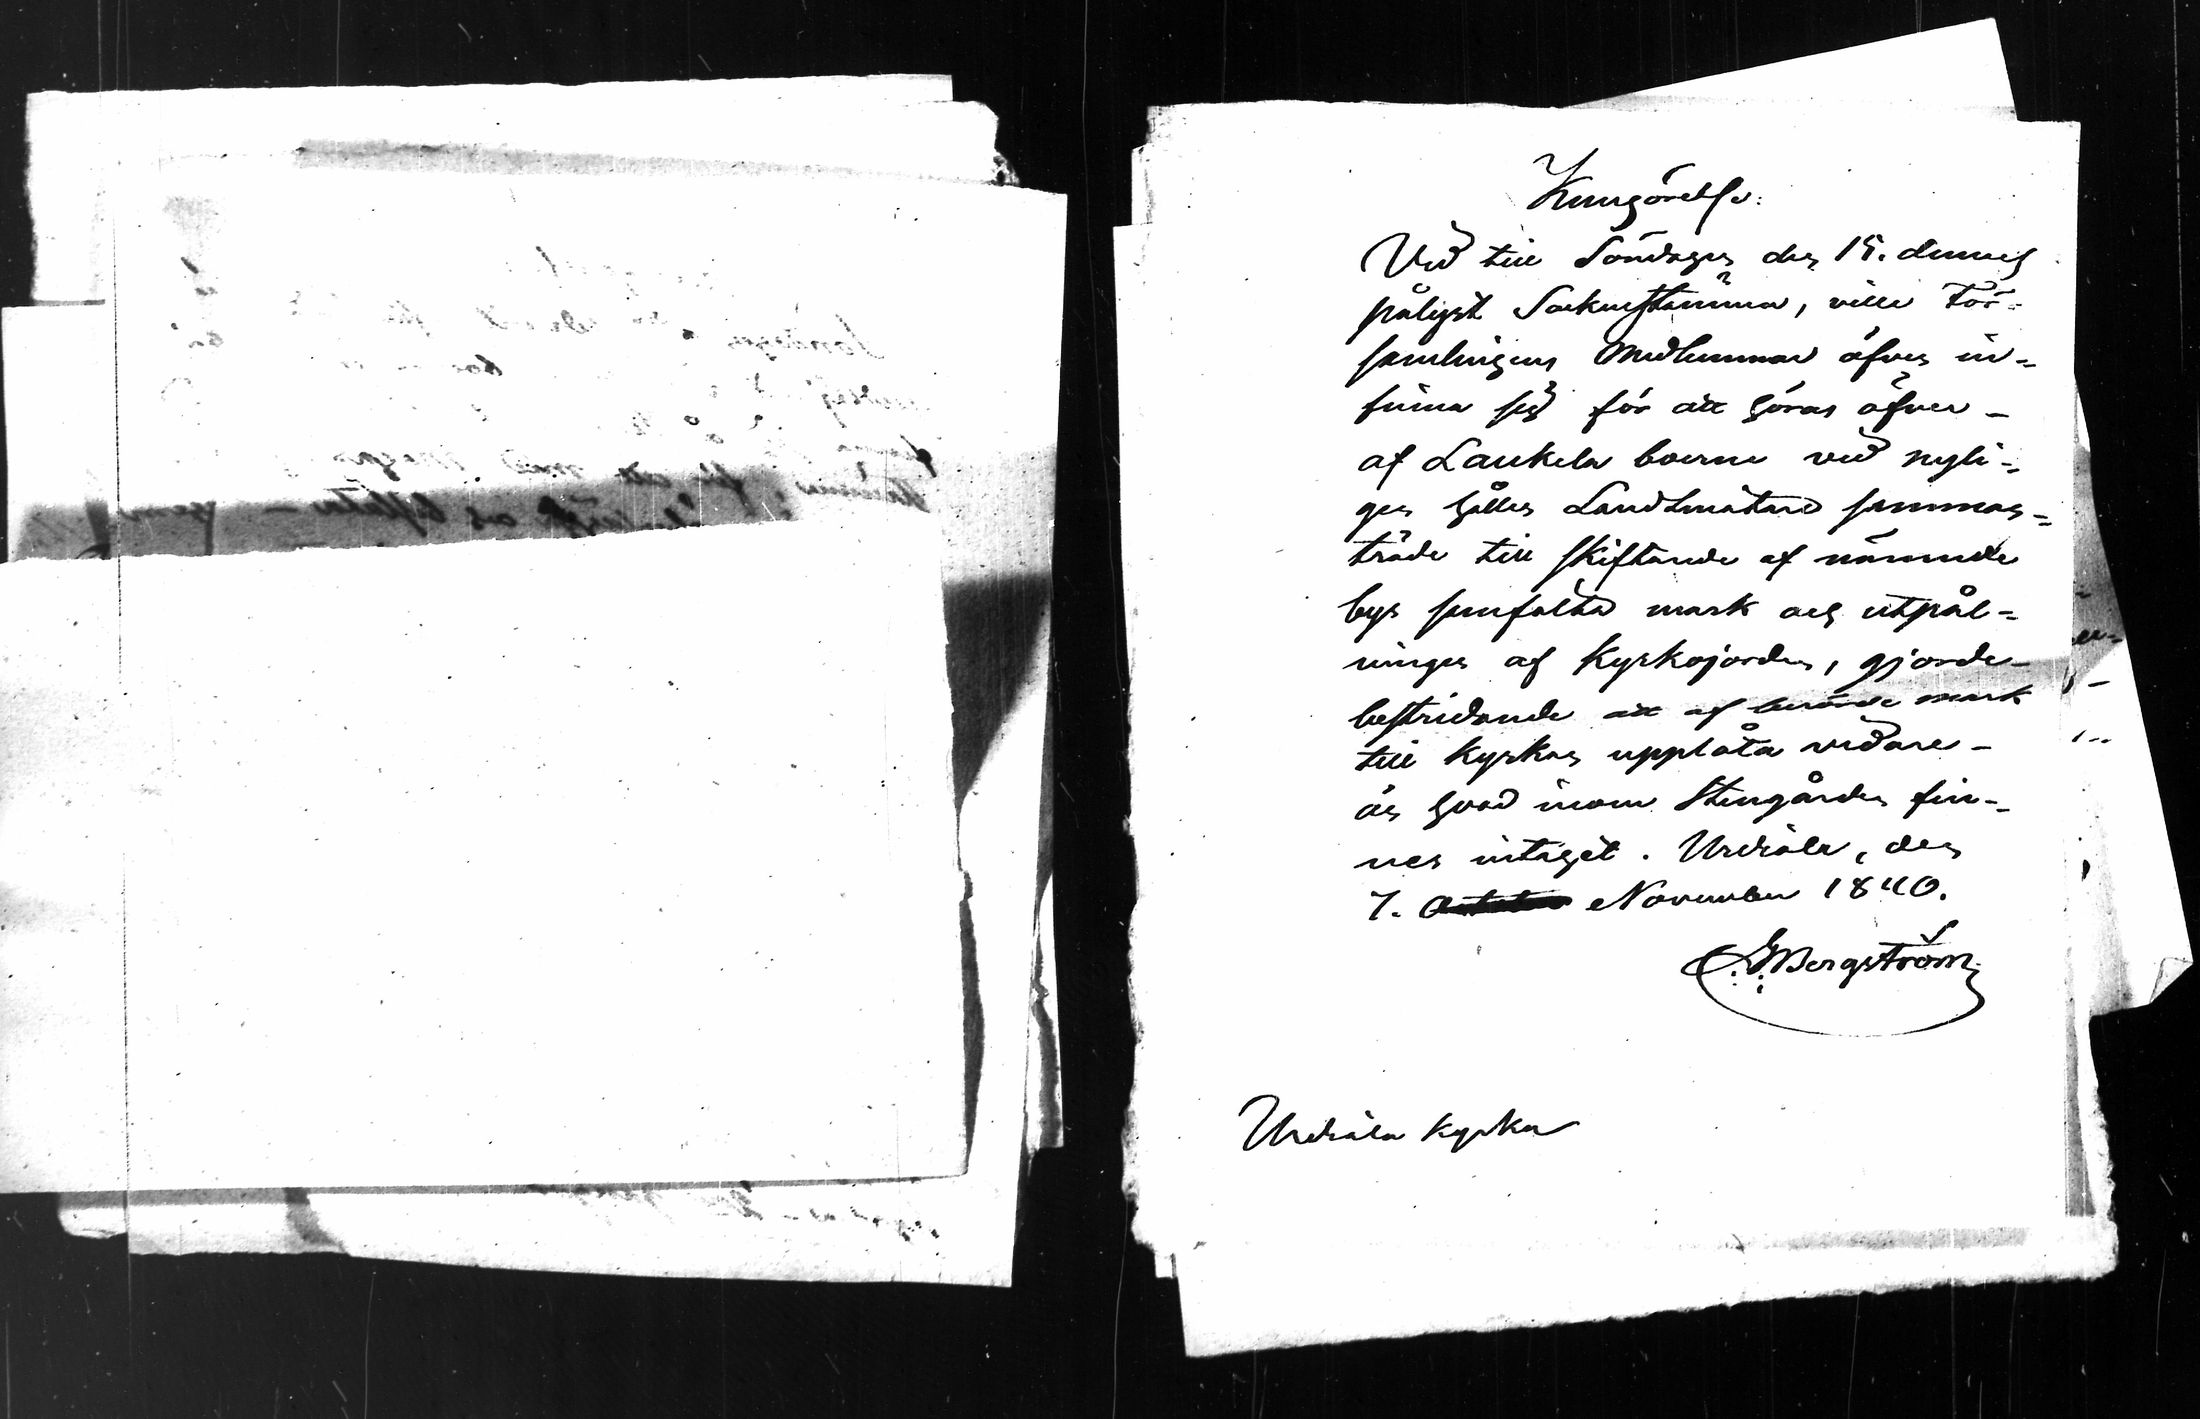 Kungörelse.
Vid till Söndagen den 15. dennes
pålyst Sockenstämma, ville För-
samlingens Medlemmar äfven in-
finna sig för att höras öfver
af Laukela boerne vid nyli-
gen hållen Landtmätare samman-
träde till skiftande af nämnde
bys samfälta mark och utpål-
ningen af Kyrkojorden, gjorde
bestridande att af berörde mark
till Kyrkan upplåta vidare
än hvad inom Stengården fin-
nes intaget. Urdiala, den
7. November 1840.
Bergström
Urdiala Kyrka